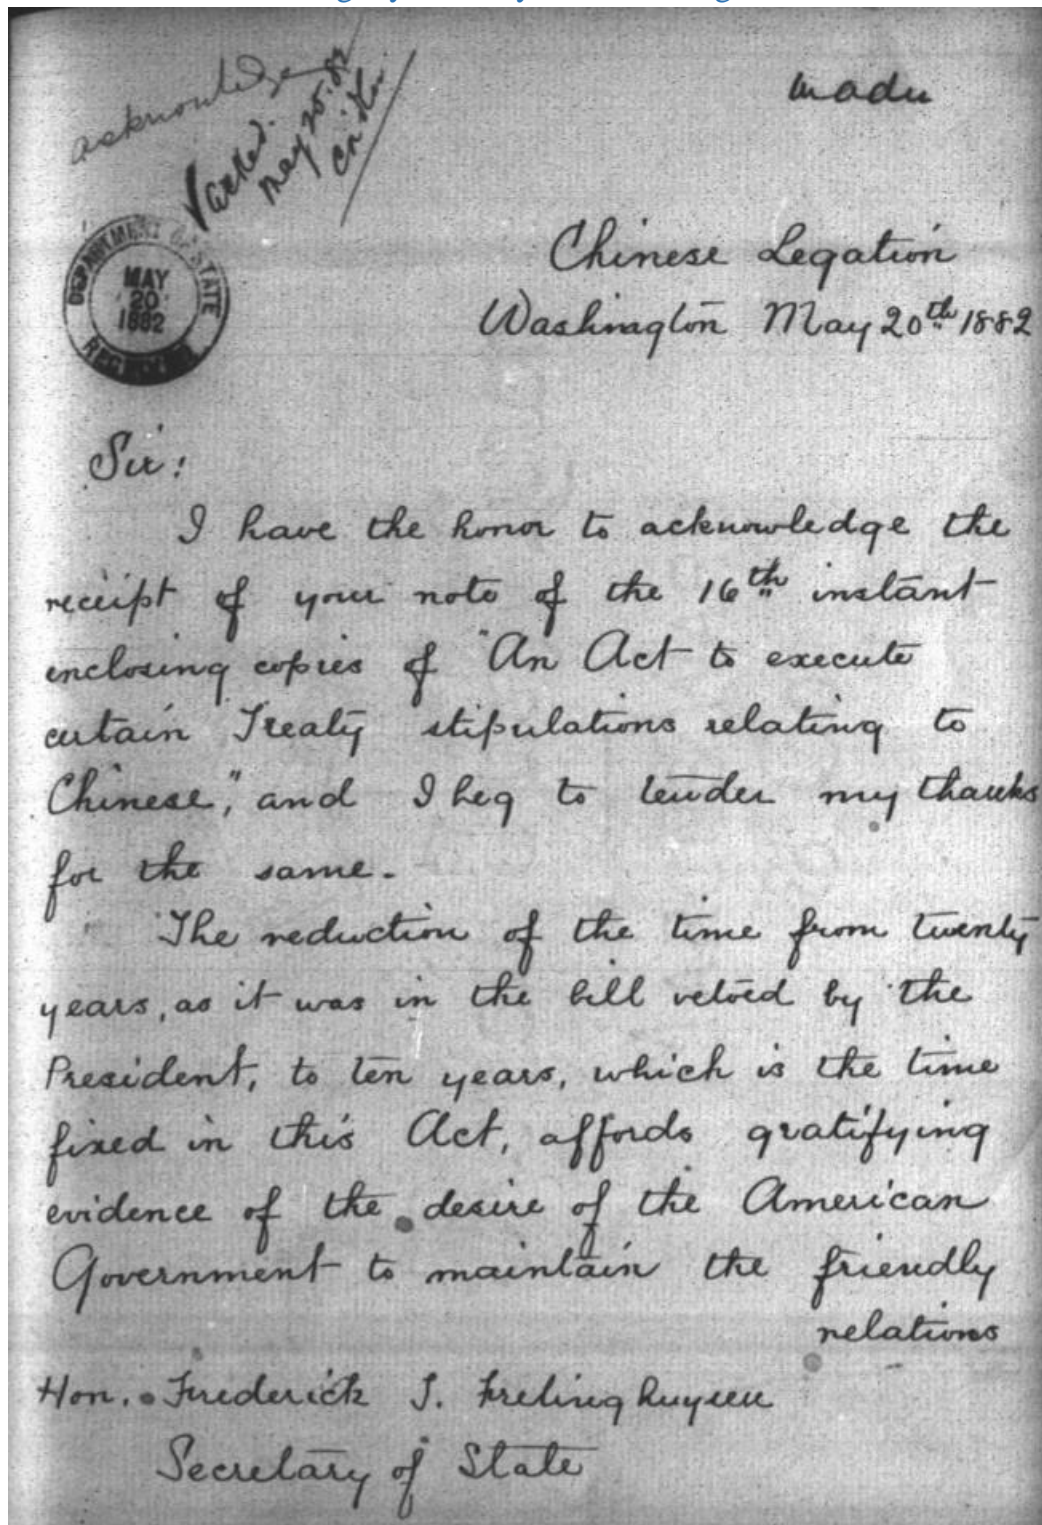 acknowledge
Ackd.
May 25. 82
Chinese Legation
Washington May 20th 1882
DEPARTMENT OF STATE
MAY
20
1882
RECEIVED
Sir:
I have the honor to acknowledge the
receipt of your note of the 16th instant
enclosing copies of "An Act to execute
certain Treaty stipulations relating to
Chinese", and I beg to tender my thanks
for the same.
The reduction of the time from twenty
years, as it was in the bill vetoed by the
President, to ten years, which is the time
fixed in this Act, affords gratifying
evidence of the desire of the American
Government to maintain the friendly
relations
Hon. Frederick T. Frelinghuysen
Secretary of State